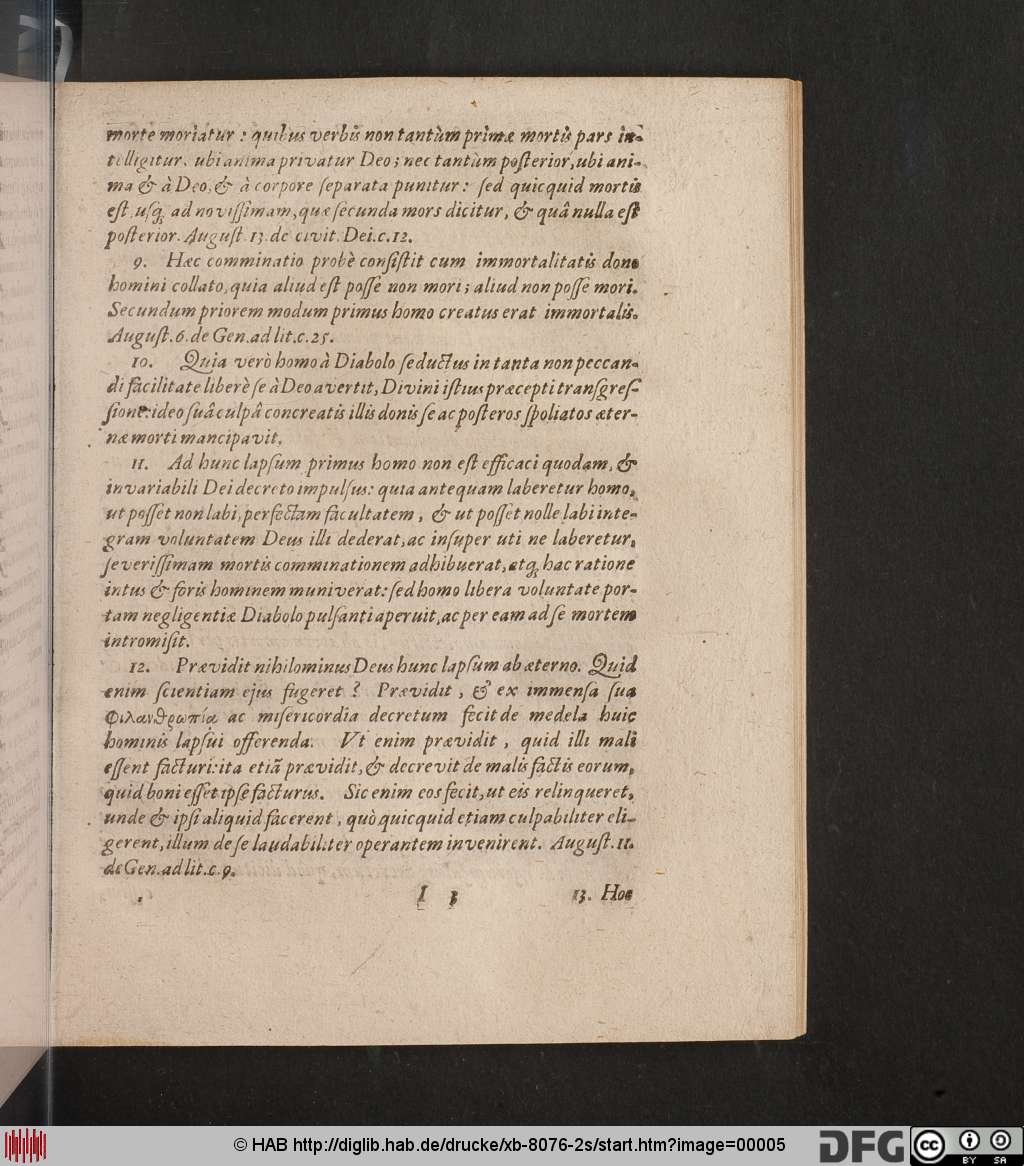 morte moriatur : quibus verbis non tantùm primæ mortis pars in-
telligitur, ubi anima privatur Deo; nec tantùm posterior, ubi ani-
ma & à Deo, & à corpore separata punitur: sed quicquid mortis
est, usq; ad novissimam, quæ secunda mors dicitur, & quâ nulla est
posterior. August. 13. de civit. Dei. c. 12.
9. Hæc comminatio probè consistit cum immortalitatis dono
homini collato, quia aliud est posse non mori; aliud non posse mori.
Secundum priorem modum primus homo creatus erat immortalis.
August. 6. de Gen. ad lit. c. 25.
10. Quia verò homo à Diabolo seductus in tanta non peccan-
di facilitate liberè se à Deo avertit, Divini istius præcepti transgres-
sione: ideo suâ culpâ concreatis illis donis se ac posteros spoliatos æter-
næ morti mancipavit.
11. Ad hunc lapsum primus homo non est efficaci quodam, &
invariabili Dei decreto impulsus: quia antequam laberetur homo,
ut posset non labi, perfectam facultatem, & ut posset nolle labi inte-
gram voluntatem Deus illi dederat, ac insuper uti ne laberetur,
severissimam mortis comminationem adhibuerat, atq; hac ratione
intus & foris hominem muniverat: sed homo libera voluntate por-
tam negligentiæ Diabolo pulsanti aperuit, ac per eam ad se mortem
intromisit.
12. Prævidit nihilominus Deus hunc lapsum ab æterno. Quid
enim scientiam ejus fugeret? Prævidit, & ex immensa sua
Φιλανθρωπία ac misericordia decretum fecit de medela huic
hominis lapsui offerenda. Vt enim prævidit, quid illi mali
essent facturi: ita etiã prævidit, & decrevit de malis factis eorum,
quid boni esset ipse facturus. Sic enim eos fecit, ut eis relinqueret,
unde & ipsi aliquid facerent, quò quicquid etiam culpabiliter eli-
gerent, illum de se laudabiliter operantem invenirent. August. 11.
de Gen. ad lit. c. 9.
I 3 13. Hoc
© HAB http://diglib.hab.de/drucke/xb-8076-2s/start.htm?image=00005
DFG
cc BY SA